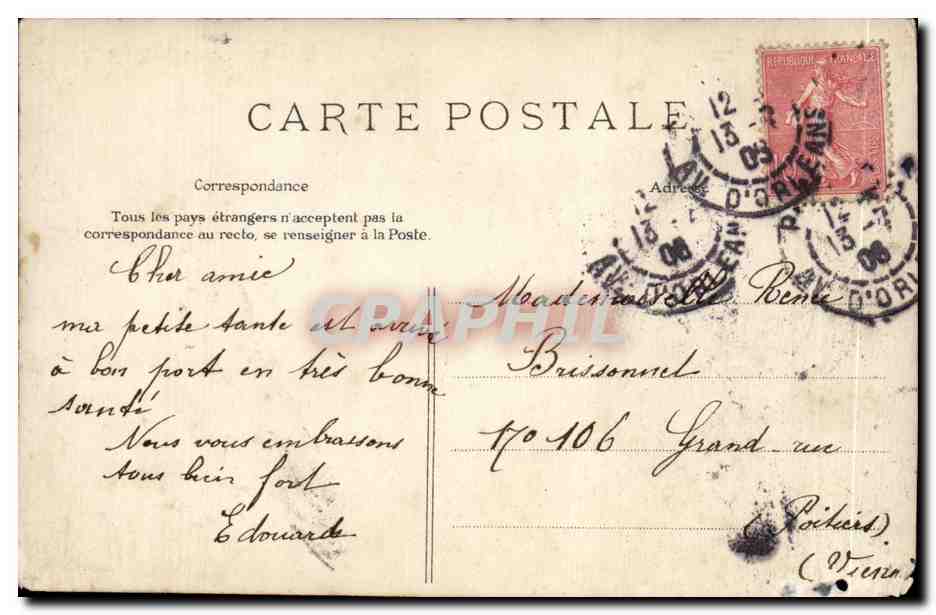 CARTE POSTALE
Correspondance
Adresse
Tous les pays étrangers n'acceptent pas la
correspondance au recto, se renseigner à la Poste.
REPUBLIQUE FRANÇAISE
12
13
AV. D'ORLEANS
12
13
08
AV. D'ORLEAN
13
08
AV. D'ORL
CPAPHIL
Cher amie
ma petite tante est arrivé
à bon port en très bonne
santé
Nous vous embrassons
tous bien fort
Edouard
Mademoiselle Renée
Brissonnet
No 106 Grand-rue
(Poitiers)
(Vienn